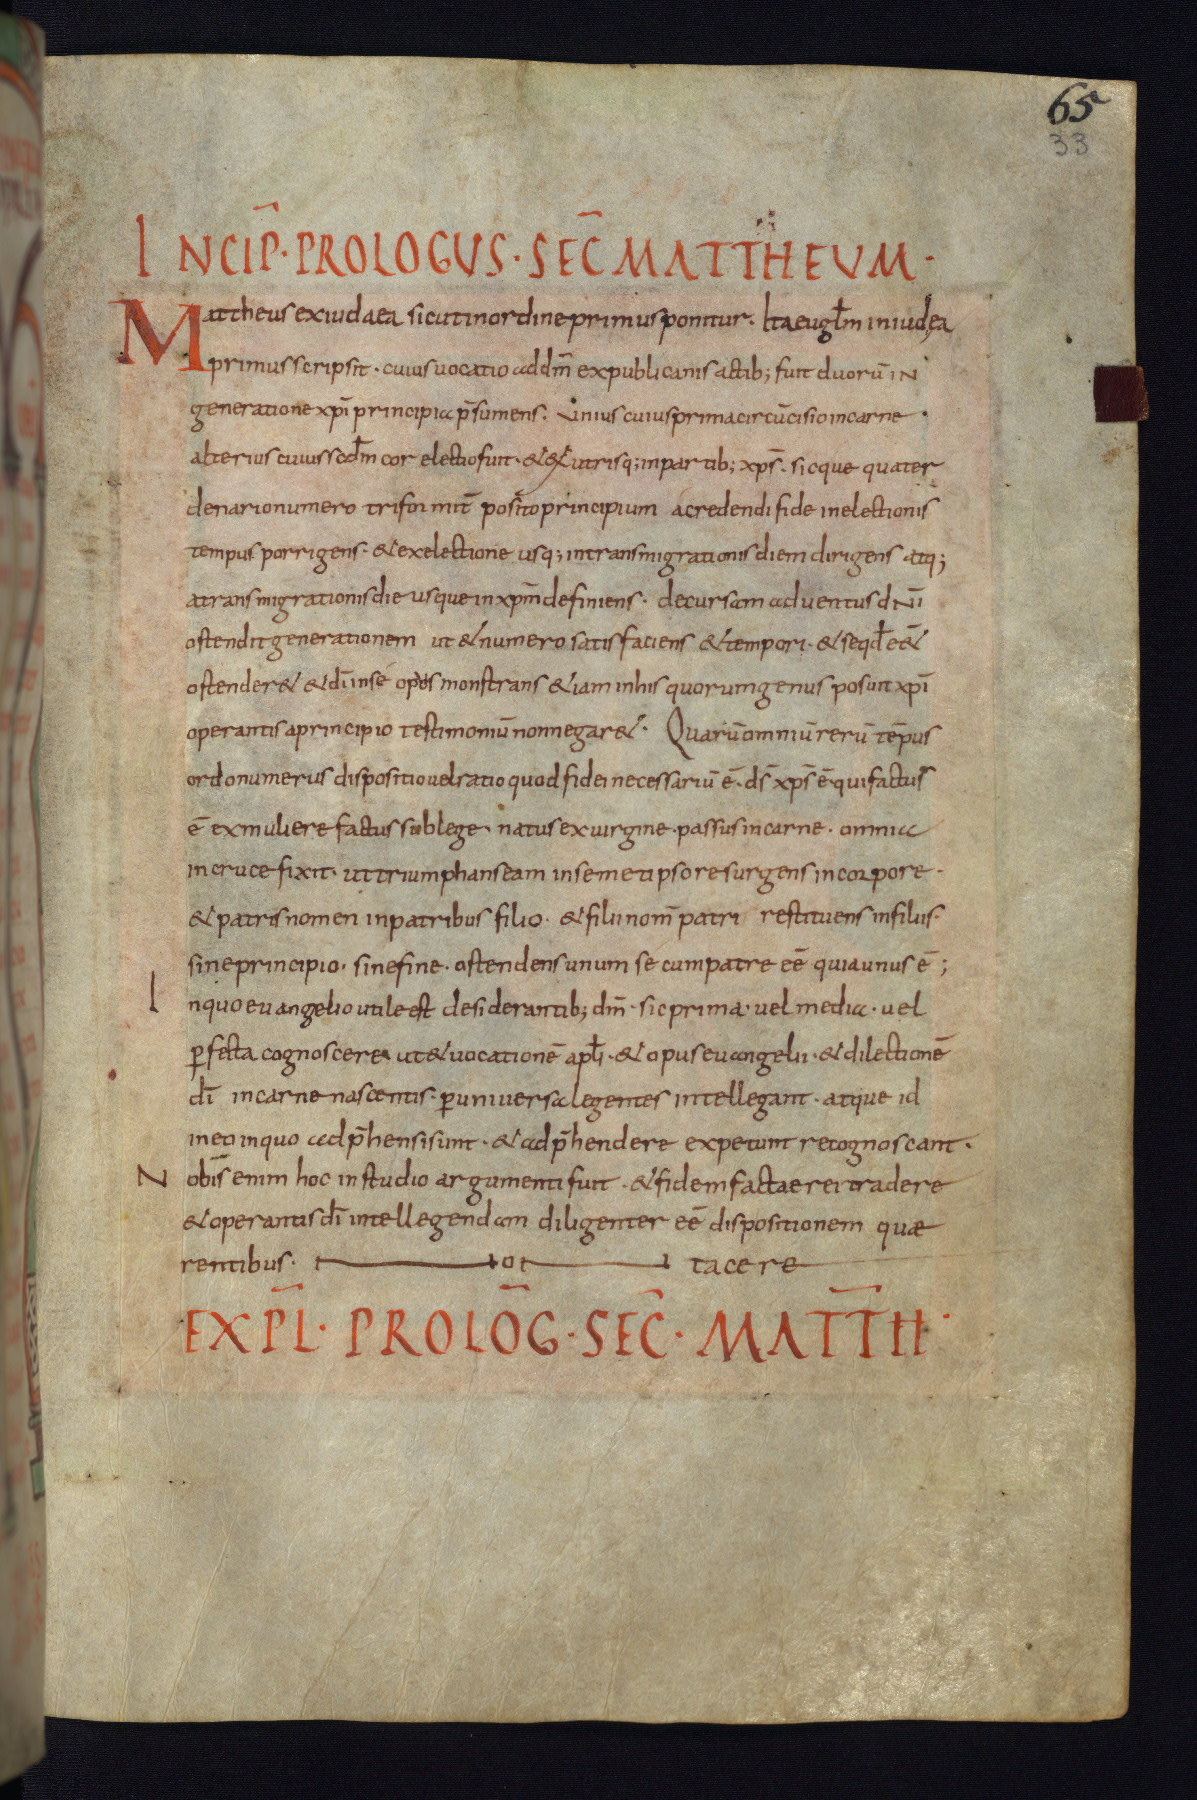 65
33
INCIP̄·PROLOGUS·SEC̄ MATTHEUM·
Mattheus ex iudaea sicut in ordine primus ponitur. Ita eugl̄m in iudęa
primus scripsit· cuius uocatio ad dm̄ ex publicanis actib; fuit duorū IN
generatione xp̄i principia p̄sumens. Unius cuius prima circūcisio in carne·
alterius cuius scd̄m cor electio fuit· & ex utrisq; in partib; xp̄s. sicque quater
denario numero triformit̄ posito principium a credendi fide in electionis
tempus porrigens· & ex electione usq; in transmigrationis diem dirigens atq;
a transmigrationis die usque in xp̄m definiens· decursam aduentus dNī
ostendit generationem ut & numero satisfaciens & tempori· & se qd̄ ee&
ostender& & dī in se opus monstrans & iam in his quorum genus posuit xp̄i
operantis a principio testimoniū non negar&· Quarū omniū rerū tēpus
ordo numerus dispositio uel ratio quod fidei necessariū ē· ds̄ xp̄s ē· qui factus
ē ex muliere factus sub lege· natus ex uirgine· passus in carne· omnia
in cruce fixit· ut triumphans eam in semetipso resurgens in corpore·
& patris nomen in patribus filio· & filii nom̄ patri restituens in filiis·
sine principio· sine fine· ostendens unum se cum patre eē quia unus ē;
In quo euangelio utile est desiderantib; dm̄· sic prima· uel media· uel
ꝑfecta cognoscere ut & uocationē apl̄i· & opus euangelii· & dilectionē
dī in carne nascentis· ꝑ uniuersa legentes intellegant· atque id
in eo in quo adp̄hensi sunt· & adp̄hendere expetunt recognoscant·
Nobis̄ enim hoc in studio argumenti fuit· & fidem factae rei tradere
& operantis dī intellegendam diligenter eē dispositionem quae
rentibus· tacere
EXPL̄· PROLOḠ·SEC̄· MATTH̄·